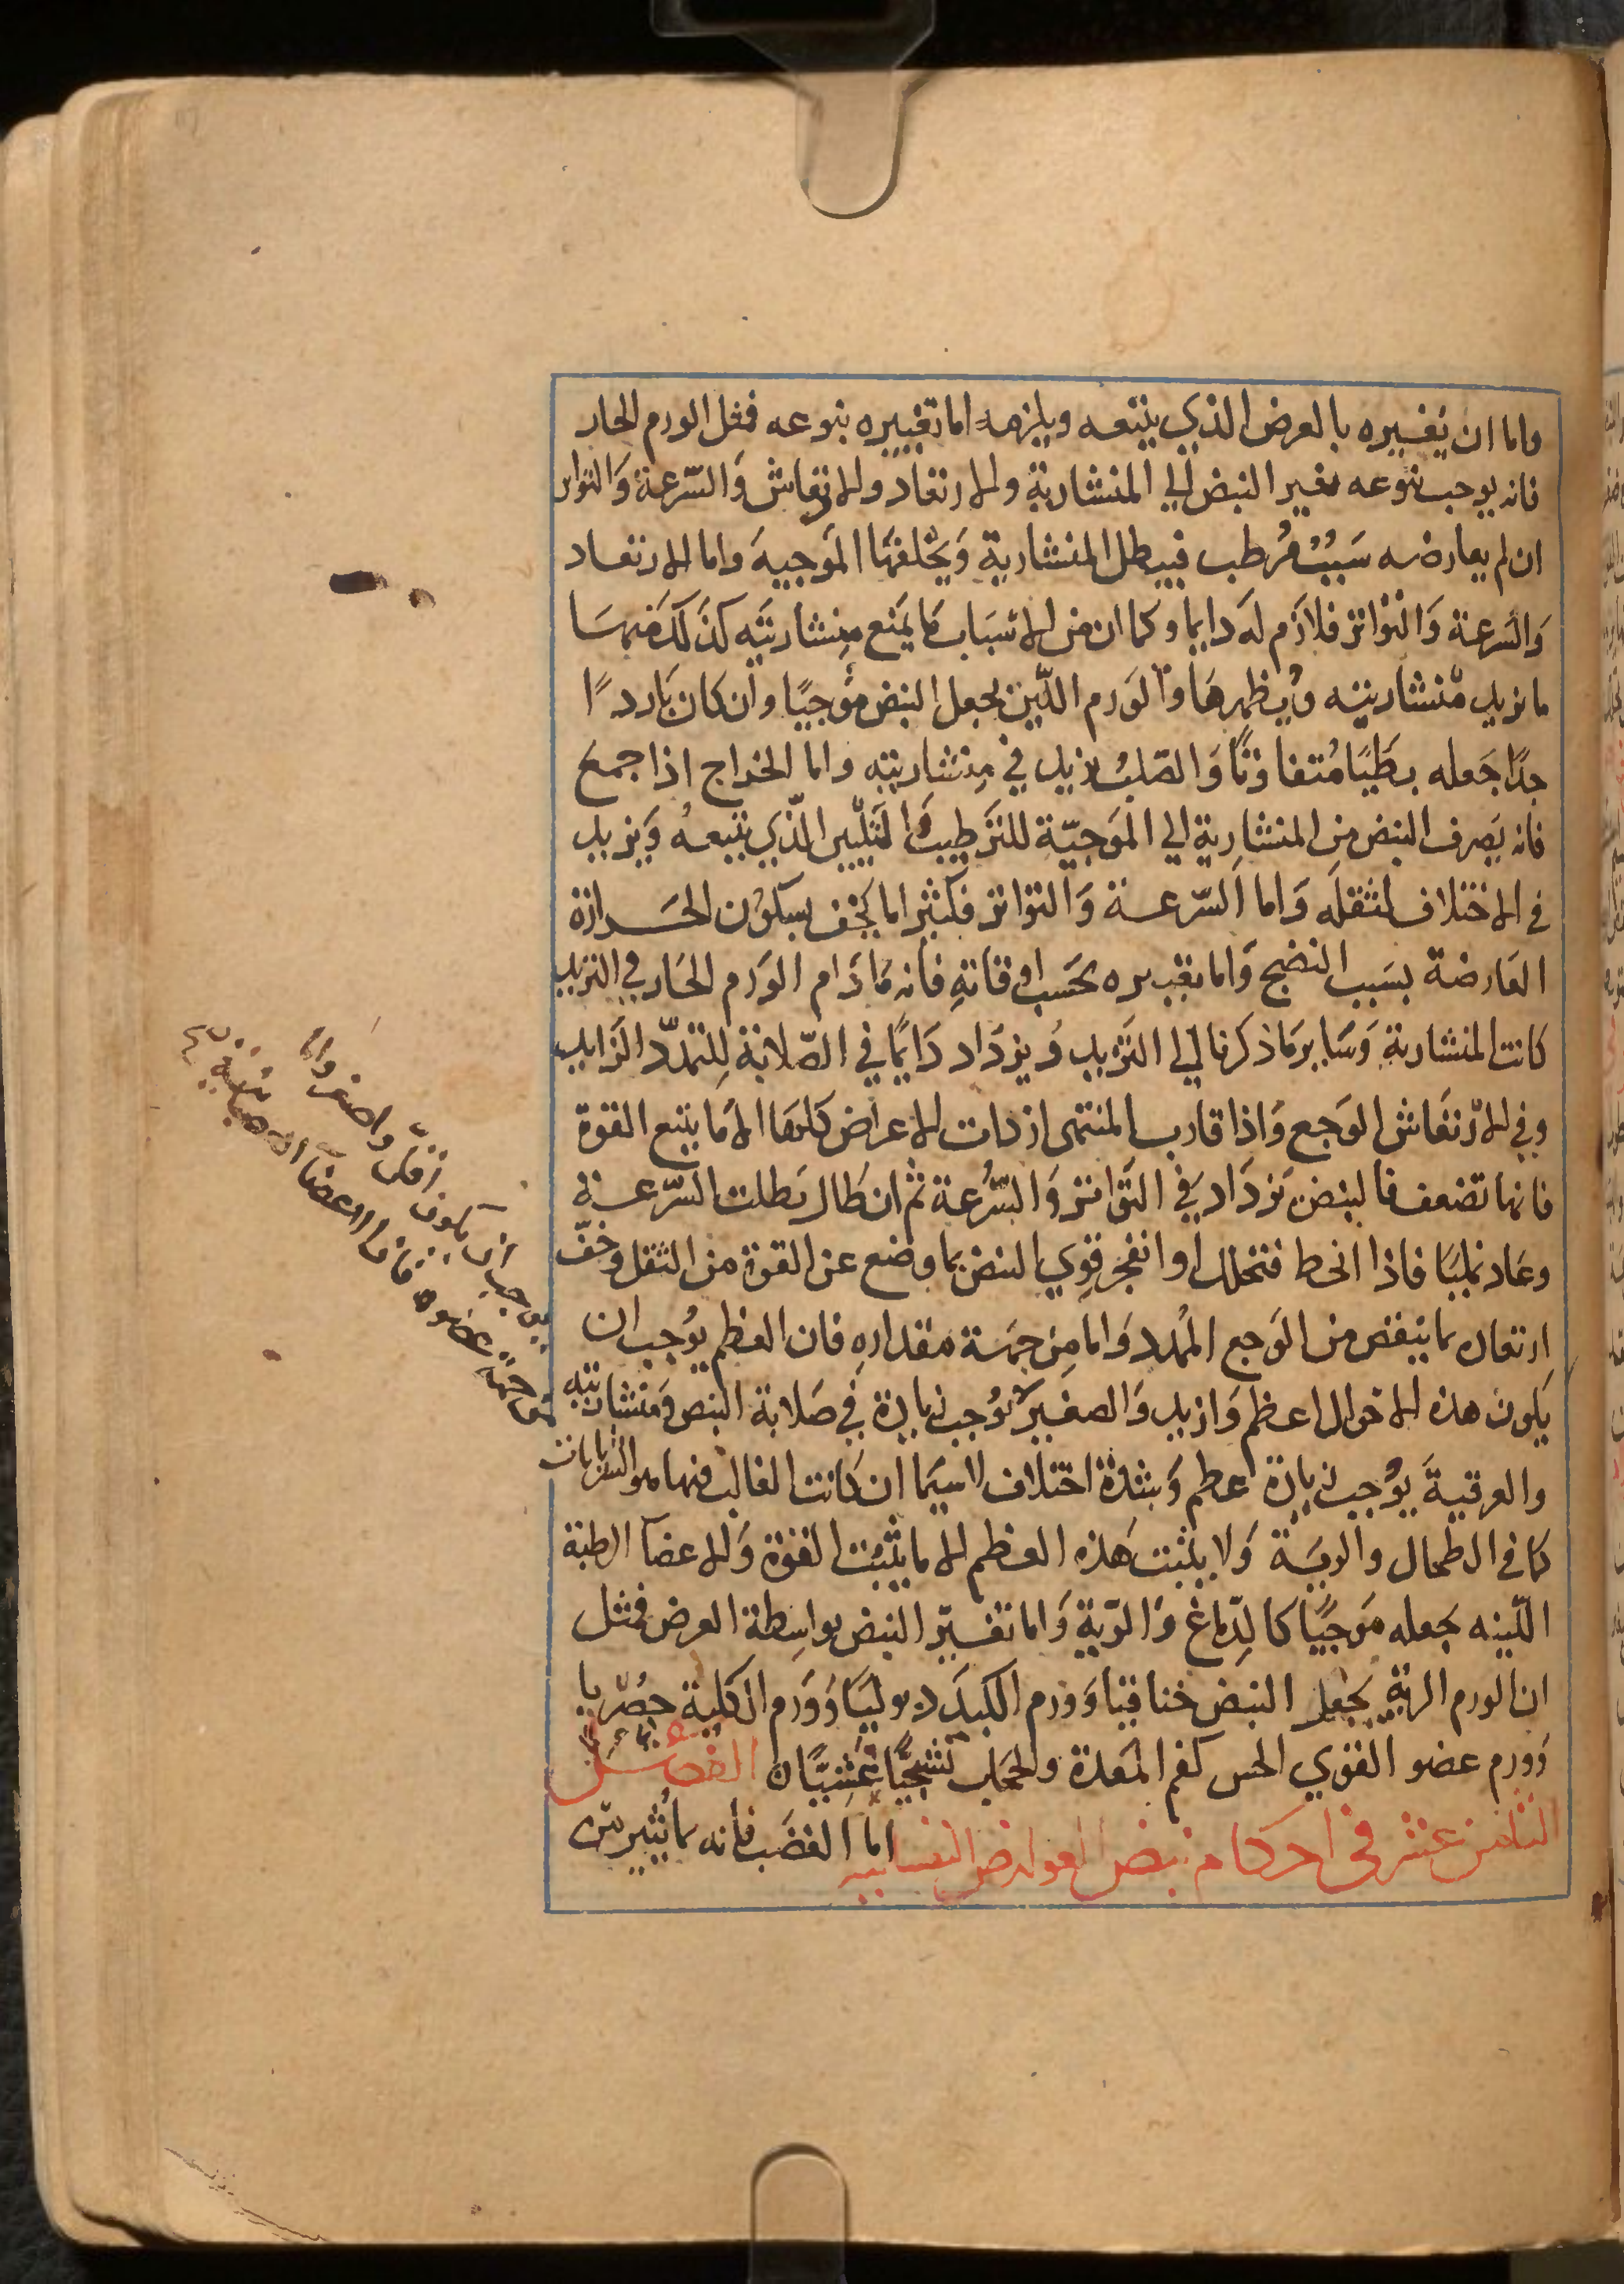 واما ان يغيره بالعرض الذي يتبعه ويلزمه اما تغييره بنوعه فمثل الورم الحار
فانه يوجب بنوعه تغير النبض الي المنشارية والارتعاد والارتعاش والسرعة والتواتر
ان لم يعارضه سبب مرطب فيبطل المنشارية ويخلفها الموجية واما الارتعاد
والسرعة والتواتر فلازم له دايما وكما ان من الاسباب ما يمنع منشاريته كذلك منها
ما يزيد منشاريته ويظهرها والورم اللين يجعل النبض موجيا وان كان باردا
جدا جعله بطيا متفاوتا والصلب يزيد في منشاريته واما الخراج اذا جمع
فانه يصرف النبض من المنشارية الي الموجية للترطيب والتليين الذي يتبعه ويزيد
في الاختلاف لثقله واما السرعة والتواتر فكثيرا ما يخف بسكون الحرارة
العارضة بسبب النضج واما تغييره بحسب اوقاته فانه ما دام الورم الحار في التزيد
كانت المنشارية وساير ما ذكرنا الي التزيد ويزداد دايما في الصلابة للتمدد الزايد
وفي الارتعاش الوجع واذا قارب المنتهى ازدادت الاعراض كلها الا ما يتبع القوة
فانها تضعف فالنبض يزداد في التواتر والسرعة ثم ان طال بطلت السرعة
وعاد نمليا فاذا انحط فتحلل او انفجر قوي النبض بما وضع عن القوة من الثقل وخف
ارتعاده بما ينقص من الوجع الممدد واما من جهة مقداره فان العظم يوجب ان
يكون هذه الاحوال اعظم وازيد والصغير يوجب زيادة في صلابة النبض ومنشاريته
والعرقية يوجب زيادة عظم وشدة اختلاف لا سيما ان كانت الغالب فيها هو الشريانات
كما في الطحال والرية ولا يثبت هذه العظم الا ما يثبت القوة والاعضا الرطبة
اللينه يجعله موجيا كالدماغ والرية واما تغيير النبض بواسطة العرض فمثل
ان الورم الرية يجعل النبض خناقيا وورم الكبد ذبوليا وورم الكلية حصريا
وورم عضو القوي الحس كفم المعدة والحجاب تشنجيا غشييا ن الفصل
الثامن عشر في احكام نبض العوارض النفسانيه اما الغضب فانه بما يثير من
يوجب ان يكون اقل واصغر واما
من جهة عضوه فان الاعضا العصبانية